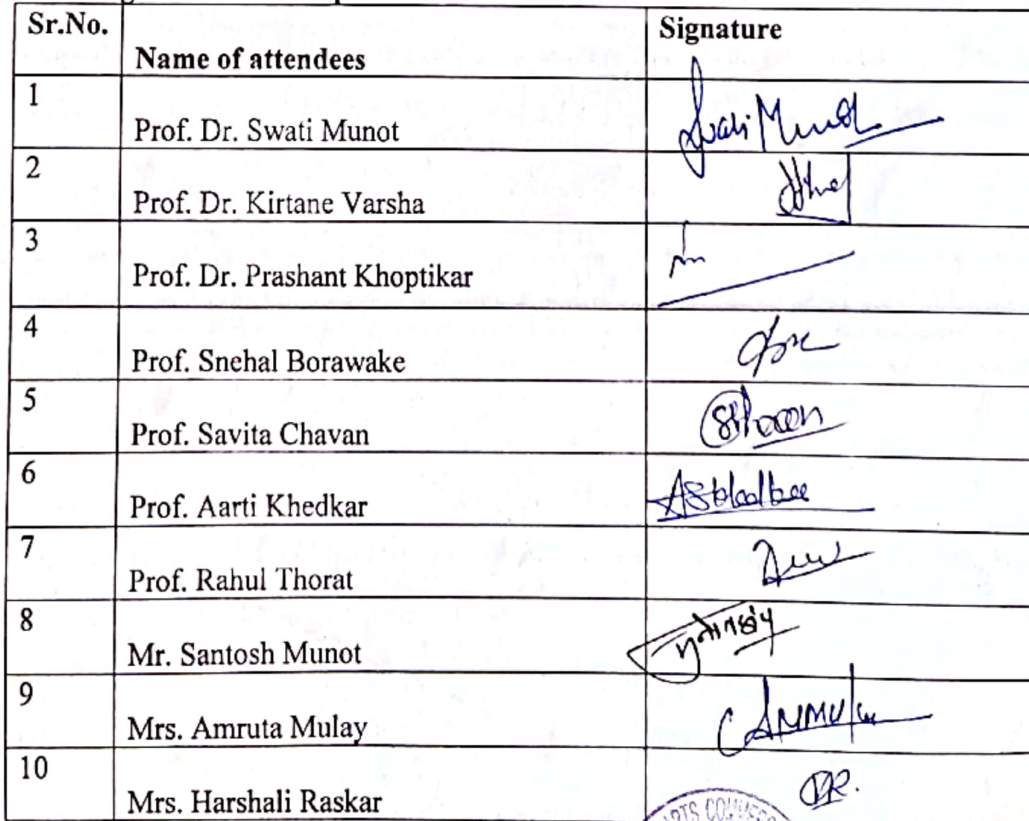 Sr.No. Name of attendees Signature
1 Prof. Dr. Swati Munot Swati Munot
2 Prof. Dr. Kirtane Varsha
3 Prof. Dr. Prashant Khoptikar
4 Prof. Snehal Borawake
5 Prof. Savita Chavan
6 Prof. Aarti Khedkar
7 Prof. Rahul Thorat
8 Mr. Santosh Munot
9 Mrs. Amruta Mulay
10 Mrs. Harshali Raskar
ARTS COMMERC